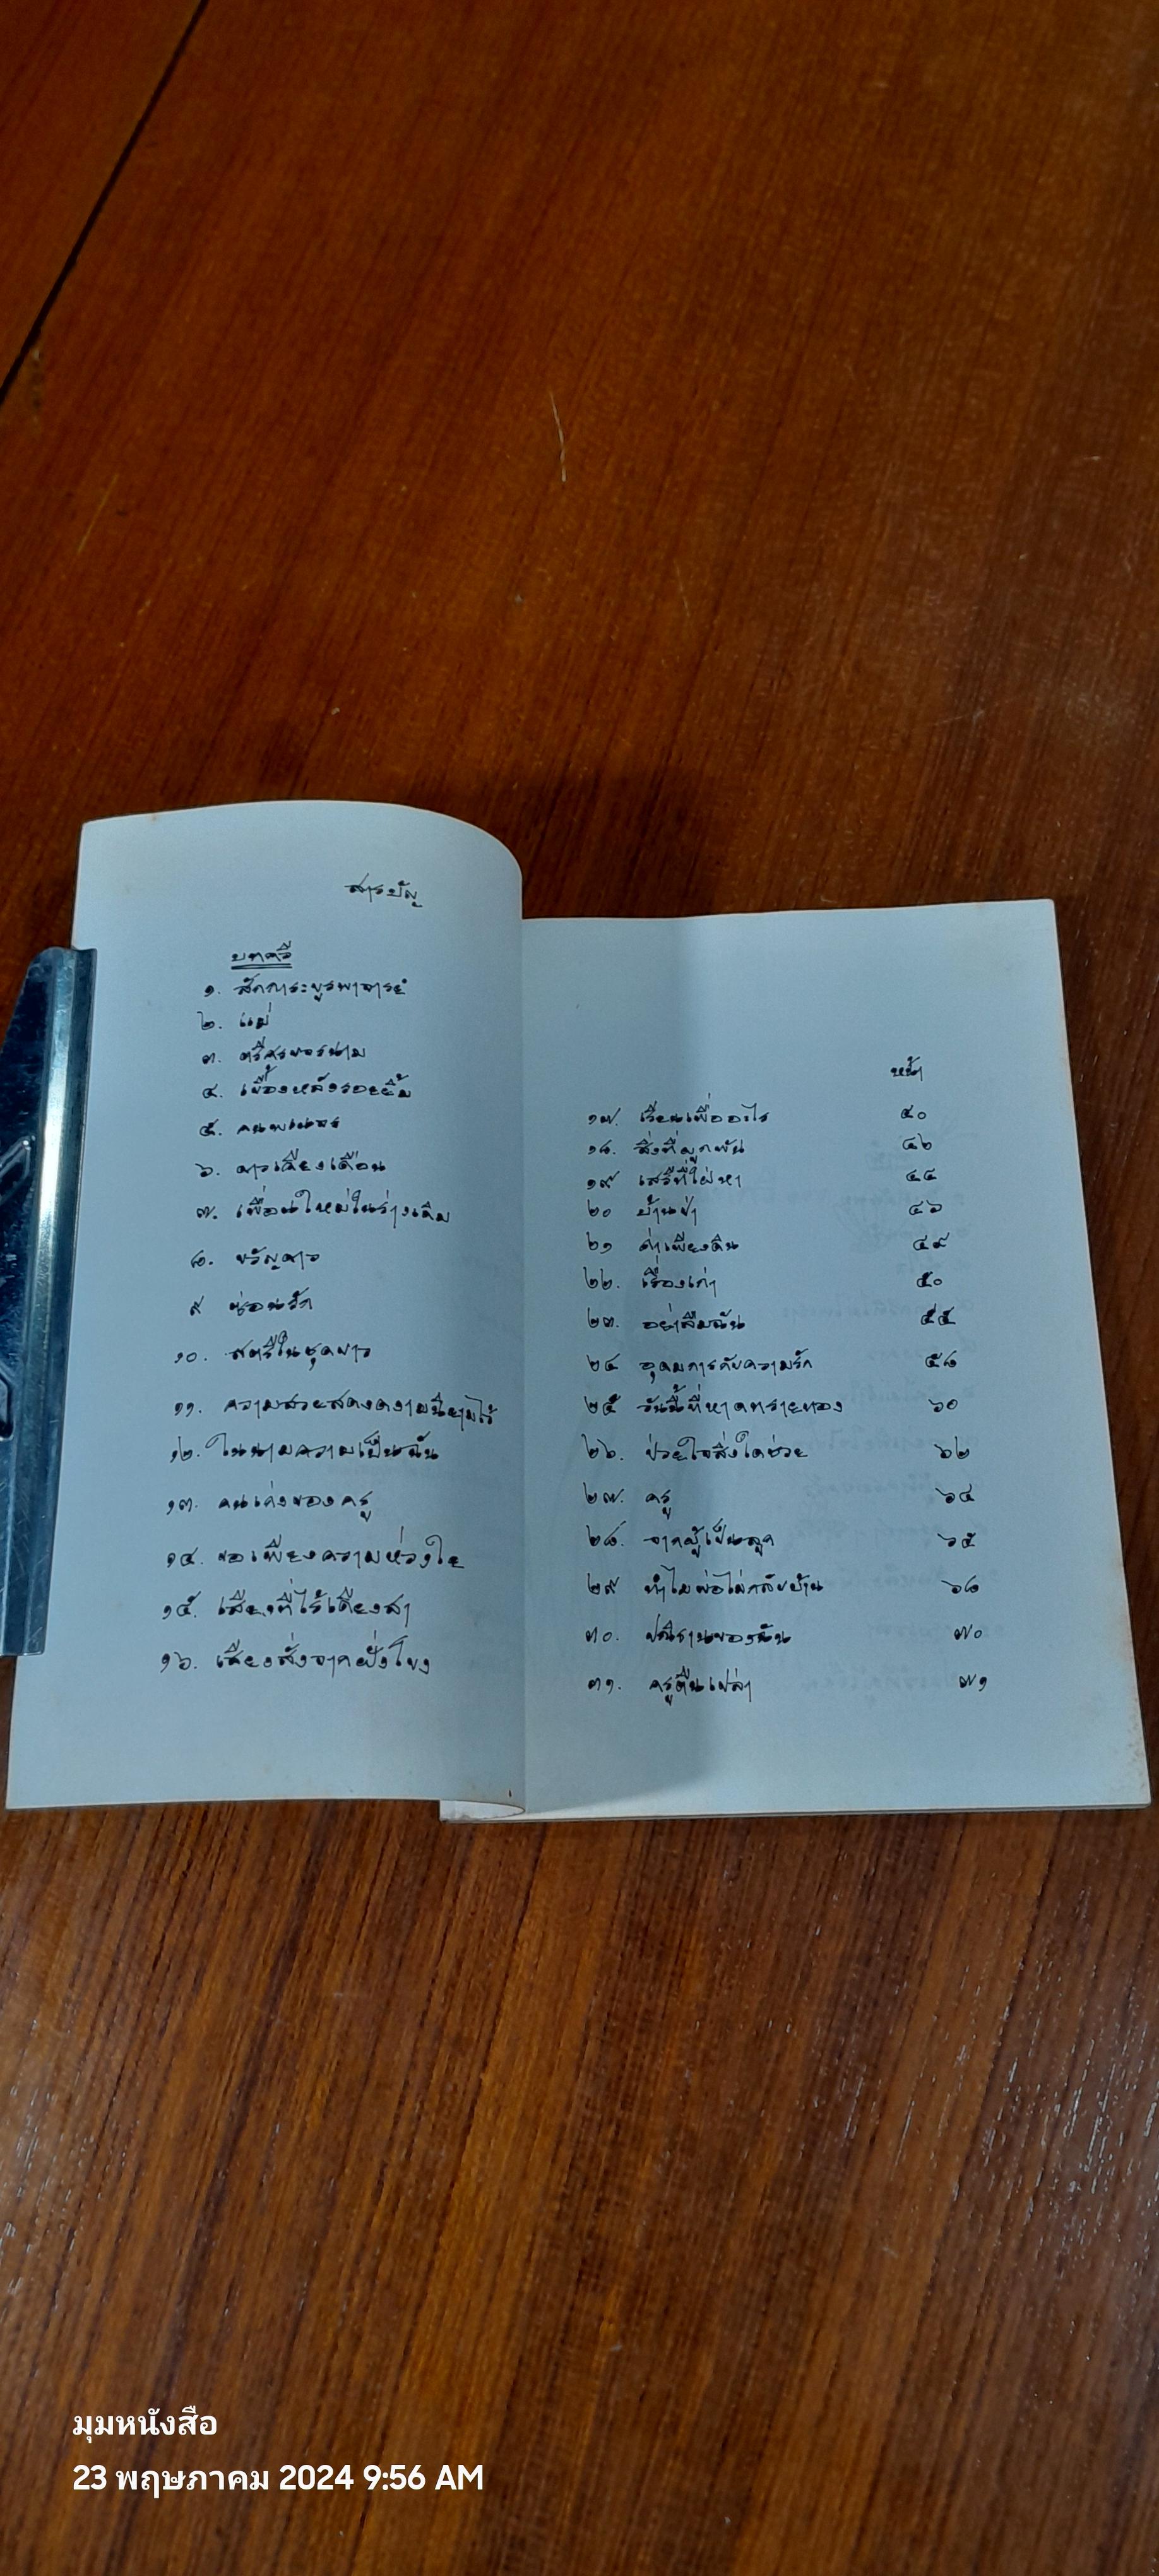 สารบัญ
บทกวี
๑. สักการะบูรพาจารย์
๒. แม่
๓. ตรีศรขจรนาม
๔. เบื้องหลังรอยยิ้ม
๕. คนพเนจร
๖. ดาวเคียงเดือน
๗. เพื่อนใหม่ในร่างเดิม
๘. ขวัญดาว
๙ ซ่อนรัก
๑๐. สตรีในชุดขาว
๑๑. ความสวยสดงดงามนิยามไว้
๑๒. ในนามความเป็นฉัน
๑๓. คนเก่งของครู
๑๔. ขอเพียงความห่วงใย
๑๕. เสียงที่ไร้เดียงสา
๑๖. เสียงสั่งจากฝั่งโขง
หน้า
๑๗. เรียนเพื่ออะไร ๔๐
๑๘. สิ่งที่ผูกพัน ๔๒
๑๙ เสรีที่ใฝ่หา ๔๔
๒๐ บ้านป่า ๔๖
๒๑ ค่าเพียงดิน ๔๙
๒๒. เรื่องเก่า ๕๐
๒๓. อย่าลืมฉัน ๕๕
๒๔ อุดมการกับความรัก ๕๘
๒๕ วันนี้ที่หาดทรายทอง ๖๐
๒๖. ป่วยใจสิ่งใดช่วย ๖๒
๒๗. ครู ๖๔
๒๘. จากผู้เป็นลูก ๖๕
๒๙ ทำไมพ่อไม่กลับบ้าน ๖๘
๓๐. ปณิธานของฉัน ๗๐
๓๑. ครูตีนเปล่า ๗๑
มุมหนังสือ
23 พฤษภาคม 2024 9:56 AM